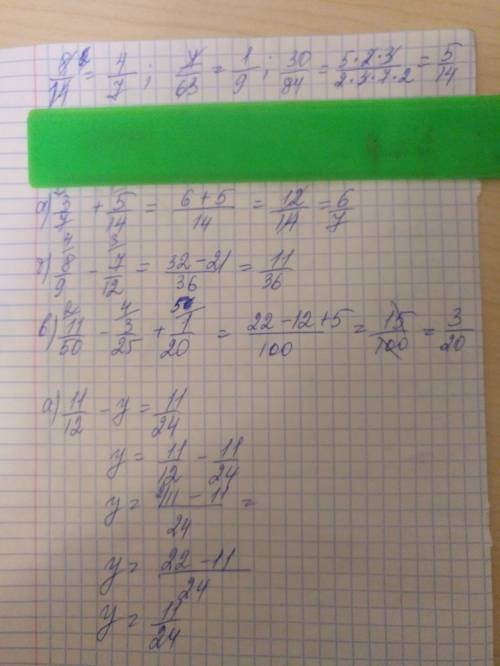 8/14 = 4/7 ; 7/63 = 1/9 ; 30/84 = 5·2·3/2·3·7·2 = 5/14
а) 3/7 + 5/14 = 6+5/14 = 12/14 = 6/7
8/9 - 7/12 = 32-21/36 = 11/36
в) 11/50 - 3/25 + 1/20 = 22-12+5/100 = 15/100 = 3/20
а) 11/12 - y = 11/24
y = 11/12 - 11/24
y = 11-11/24 =
y = 22-11/24
y = 11/24